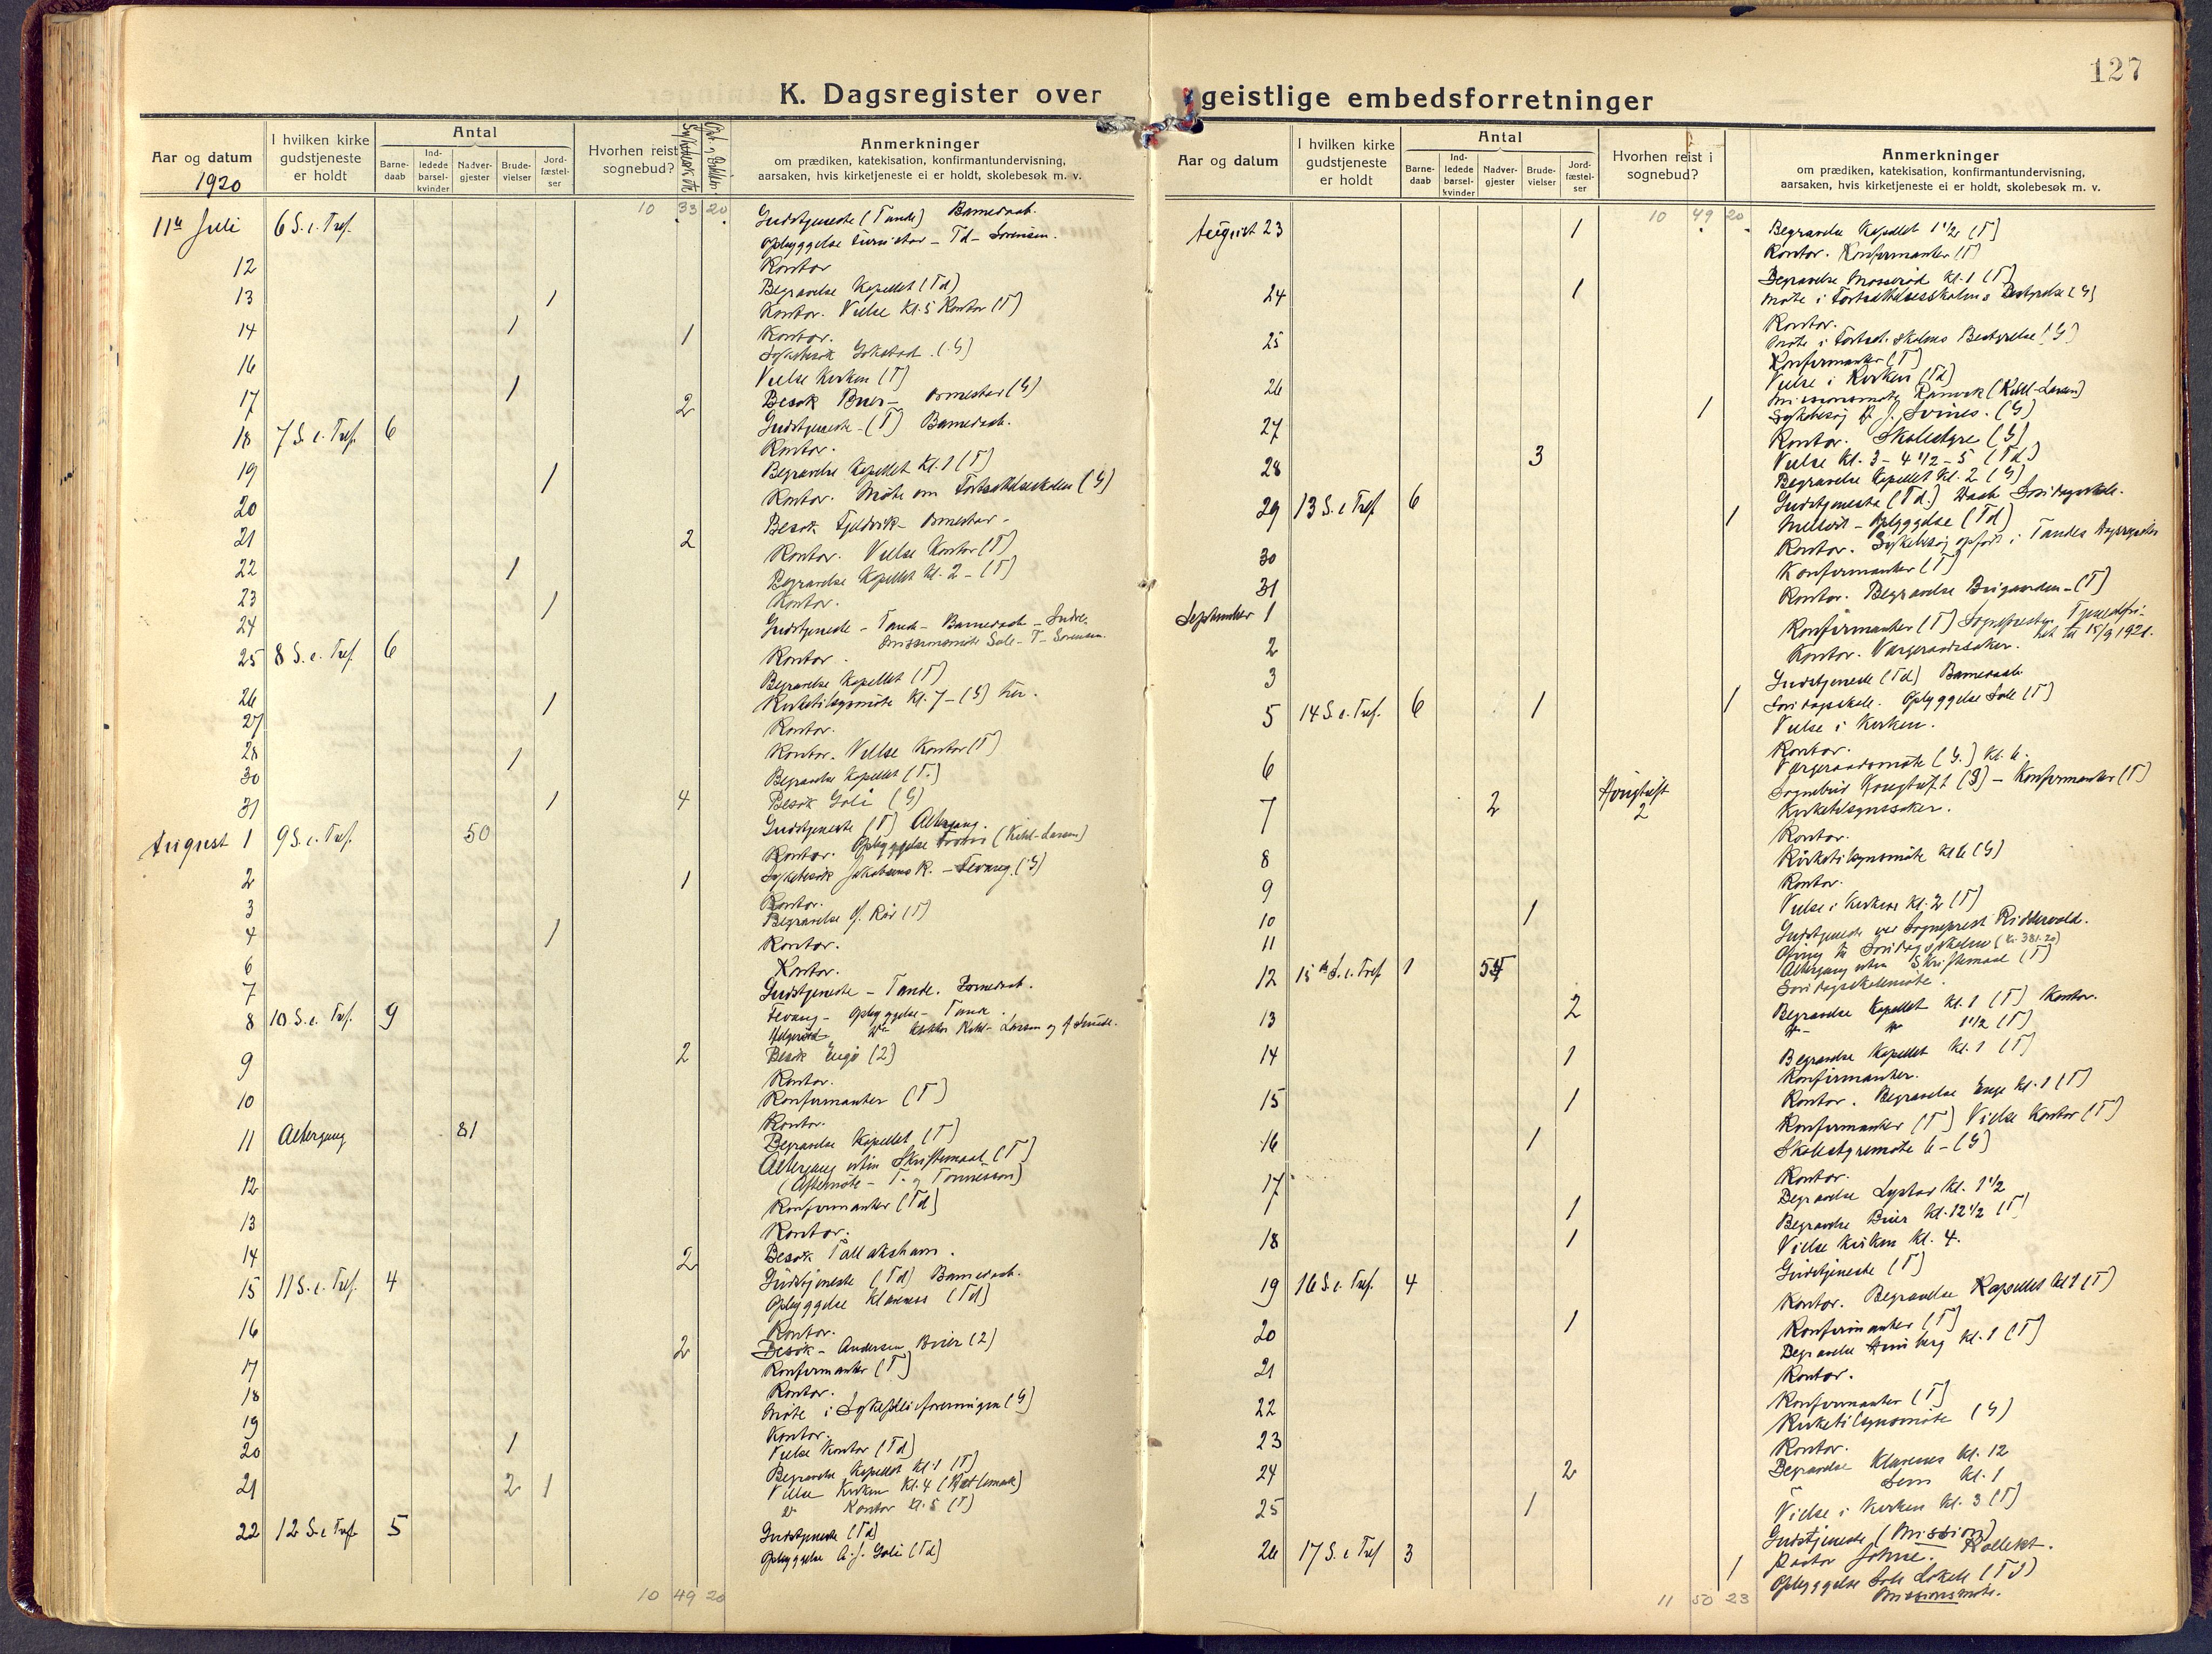 127
K. Dagsregister over geistlige embedsforretninger
Aar og datum
1920
I hvilken kirke gudstjeneste er holdt
Antal
Barnedaab
Indledede barselkvinder
Nadvergjester
Brudevielser
Jordfæstelser
Hvorhen reist i sognebud?
Anmerkninger
om prædiken, katekisation, konfirmantundervisning,
aarsaken, hvis kirketjeneste ei er holdt, skolebesøk m. v.
10 33 20
11te Juli 6 S. e. Tref. Gudstjeneste (Tande) Barnedaab.
Opbyggelse – Td – Sørensen.
12 Kontor
13 1 Begravelse Kapellet (Td)
Kontor. Vielse Kl. 5 Kontor (T)
14 1 1 Kontor.
Sykebesøk (G)
16 1 Vielse Kirken (T)
17 2 Besøk Buer – Ormestad (G)
18 7 S. e. Tref. 6 Gudstjeneste – (T) Barnedaab.
19 1 Kontor.
Begravelse Kapellet Kl. 1 (T)
20 Kontor. Møte om Fortsættelsesskolen (G)
21 2 Besøk Fjeldvik – Ormestad –
22 1 Kontor. Vielse Kontor (T)
23 1 Begravelse Kapellet kl. 2 – (T)
24 Kontor.
25 8 S. e. Tref. 6 Gudstjeneste – Tande – Barnedaab –
Missionsmøte Sole – T – Sørensen
26 1 Kontor.
Begravelse Kapellet (T)
27 Kirketilsynsmøte Kl. 7 – (G)
28 1 Kontor.
30 Kontor. Vielse Kontor (T)
31 1 4 Begravelse Kapellet (T.)
Besøk Goli (G)
August 1 9 S. e. Tref. 50 Gudstjeneste (T) Altergang.
2 Kontor. Opbyggelse (Kihl-Larsen)
3 1 Sykebesøk Jakobsens K. – Fevang. (G)
Kontor.
4 1 Begravelse (T)
6 Kontor.
7 Kontor.
8 10 S. e. Tref. 9 Gudstjeneste – Tande. Barnedaab.
Fevang – Opbyggelse – Tande.
Helgerød Klokker Kihl-Larsen og
9 2 Besøk Engø (2)
Kontor.
10 Konfirmanter (T)
11 Altergang 81 Kontor.
Begravelse Kapellet (T)
Altergang uten Skriftemaal (T)
(Aftenmøte – T. og Tønnessen)
12 Konfirmanter (Td)
13 Kontor.
14 2 Besøk Tallakshavn.
15 11 S. e. Tref. 4 Gudstjeneste (Td) Barnedaab.
Opbyggelse Klavenes (Td)
16 2 Kontor.
Besøk – Andersen, Buer (2)
17 Konfirmanter (T)
18 Kontor.
19 Møte i Sykepleieforeningen (G)
Kontor.
20 1 Vielse Kontor (Td)
21 2 1 Begravelse Kapellet kl. 1 (T)
Vielse Kirken Kl. 4
Kontor kl. 5 (T)
22 12 S. e. Tref. 5 Gudstjeneste (Td)
Opbyggelse Goli (Td)
10 49 20
Aar og datum
I hvilken kirke gudstjeneste er holdt
Antal
Barnedaab
Indledede barselkvinder
Nadvergjester
Brudevielser
Jordfæstelser
Hvorhen reist i sognebud?
Anmerkninger
om prædiken, katekisation, konfirmantundervisning,
aarsaken, hvis kirketjeneste ei er holdt, skolebesøk m. v.
10 49 20
August 23 1 Begravelse Kapellet 1 1/2 (T)
Kontor. Konfirmanter (T)
24 1 Begravelse Mosserød kl. 1 (T)
Møte i Fortsættelsesskolens Bestyrelse (G)
25 Kontor.
Møte i Fortsæt. skolens Bestyrelse (G)
Konfirmanter (T)
26 Vielse i Kirken (Td)
Missionsmøte (Kihl-Larsen)
27 1 Sykebesøg Svines. (G)
Kontor. Skolestyre (G)
28 3 Vielse Kl. 3 – 4 1/2 – 5 (Td)
Begravelse Kapellet Kl. 2 (G)
29 13 S. e. Tref. 6 1 Gudstjeneste (Td.) Daab Søndagsskole.
Mellevit – Opbyggelse (Td)
30 Kontor. Sykebesøg opført i Tandes Dagsregister
Konfirmanter (T)
31 Kontor. Begravelse Brigaarden – (T)
September 1 Konfirmanter (T) Sognepresten Tjenestfri-
het til 15/9 1921.
2 Kontor. Værgeraadssaker.
3
5 14 S. e. Tref. 6 1 1 Gudstjeneste (Td) Barnedaab
Søndagsskole. Opbyggelse Sole (T)
Vielse i Kirken.
6 Kontor.
Værgeraadsmøte (G.) kl. 6.
7 2 Hougtuft 2 Sognebud Hougtuft (G) – Konfirmanter (T)
Kirketilsynssaker.
8 Kontor.
Kirketilsynsmøte kl 6 (G)
9 Kontor.
10 1 Vielse i Kirken kl. 2 (T)
11
12 15de S. e. Tref 1 54 Gudstjeneste ved Sogneprest Riddervold.
Ofring til Søndagsskolen (Kr. 381.20)
Altergang uten Skriftemaal (T)
Søndagsskolemøte.
13 2 Begravelse Kapellet kl. 1 (T) Kontor.
1 1/2 (T)
14 1 Begravelse Kapellet kl. 1 (T)
Konfirmanter.
15 1 Kontor. Begravelse Engø kl. 1 (T)
16 1 Konfirmanter (T) Vielse Kontor (T)
Skolestyremøte 6 – (G)
17 1 Kontor.
Begravelse Lystad Kl. 1 1/2
18 1 Begravelse Buer kl. 12 1/2 (T)
Vielse Kirken kl. 4.
19 16 S. e. Tref. 4 Gudstjeneste (T)
20 1 Kontor. Begravelse Kapellet kl 1 (T)
Konfirmanter (T)
21 Begravelse kl. 1 (T)
Kontor.
22 Konfirmanter (T)
Kirketilsynsmøte (G)
23 Kontor.
24 2 Begravelse Klavenes kl. 12
Sem kl. 1
25 1 Vielse i Kirken kl. 3 (T)
26 17 S. e. Tref 3 1 Gudstjeneste (Mission)
Pastor Johne. Kollekt.
Opbyggelse Sole Lokale (Td)
Missionsmøte.
11 50 23